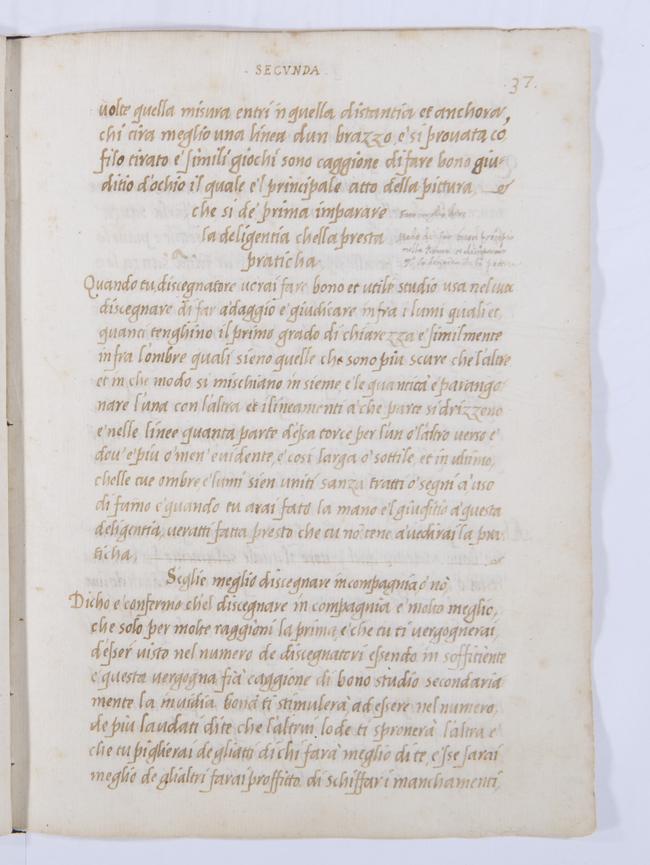 · SECVNDA ·
· 37 ·
uolte quella misura entri in quella distantia et anchora,
chi tira meglio una linea dun brazzo e si prouata co
filo tirato e simili giochi sono caggione di fare bono giu-
ditio d'ochio il quale e'l principale atto della pictura
che si de prima imparare
la deligentia chella presta
praticha
Quando tu disegnatore uorai fare bono et utile studio usa nel tuo
discegnare di far adaggio e giudicare infra i lumi quali et
quanti tenghino il primo grado di chiarezza e similmente
infra l'ombre quali sieno quelle che sono piu scure che l'altre
et in che modo si mischiano in sieme e le quantità e parango
nare l'una con l'altra et i lineamenti à che parte si drizzeno
e nelle linee quanta parte d'essa torce per l'un o l'altro uerso e
dou'e piu o men euidente, e cosi larga o' sottile, et in ultimo,
chelle tue ombre e lumi sien uniti sanza tratti o segni à uso
di fumo e quando tu arai fato la mano e'l giuditio a questa
deligentia, ueratti fatta presto che tu nō tene auedirai la pra
ticha
Seglie meglio discegnare in compagnia o no
Dicho e confermo chel discegnare in compagnia e' molto meglio,
che solo per molte raggioni la prima e' che tu ti vergognerai
d'esser visto nel numero de discegnatori essendo in sofficiente
e questa vergogna fia caggione di bono studio secondaria
mente la inuidia bona ti stimulerà ad essere nel numero,
de più laudati di te che l'altrui lode ti spronerà l'altra e'
che tu piglierai de gli atti di chi farà meglio di te, e se sarai
meglio de gli altri farai proffitto di schiffar i manchamenti,